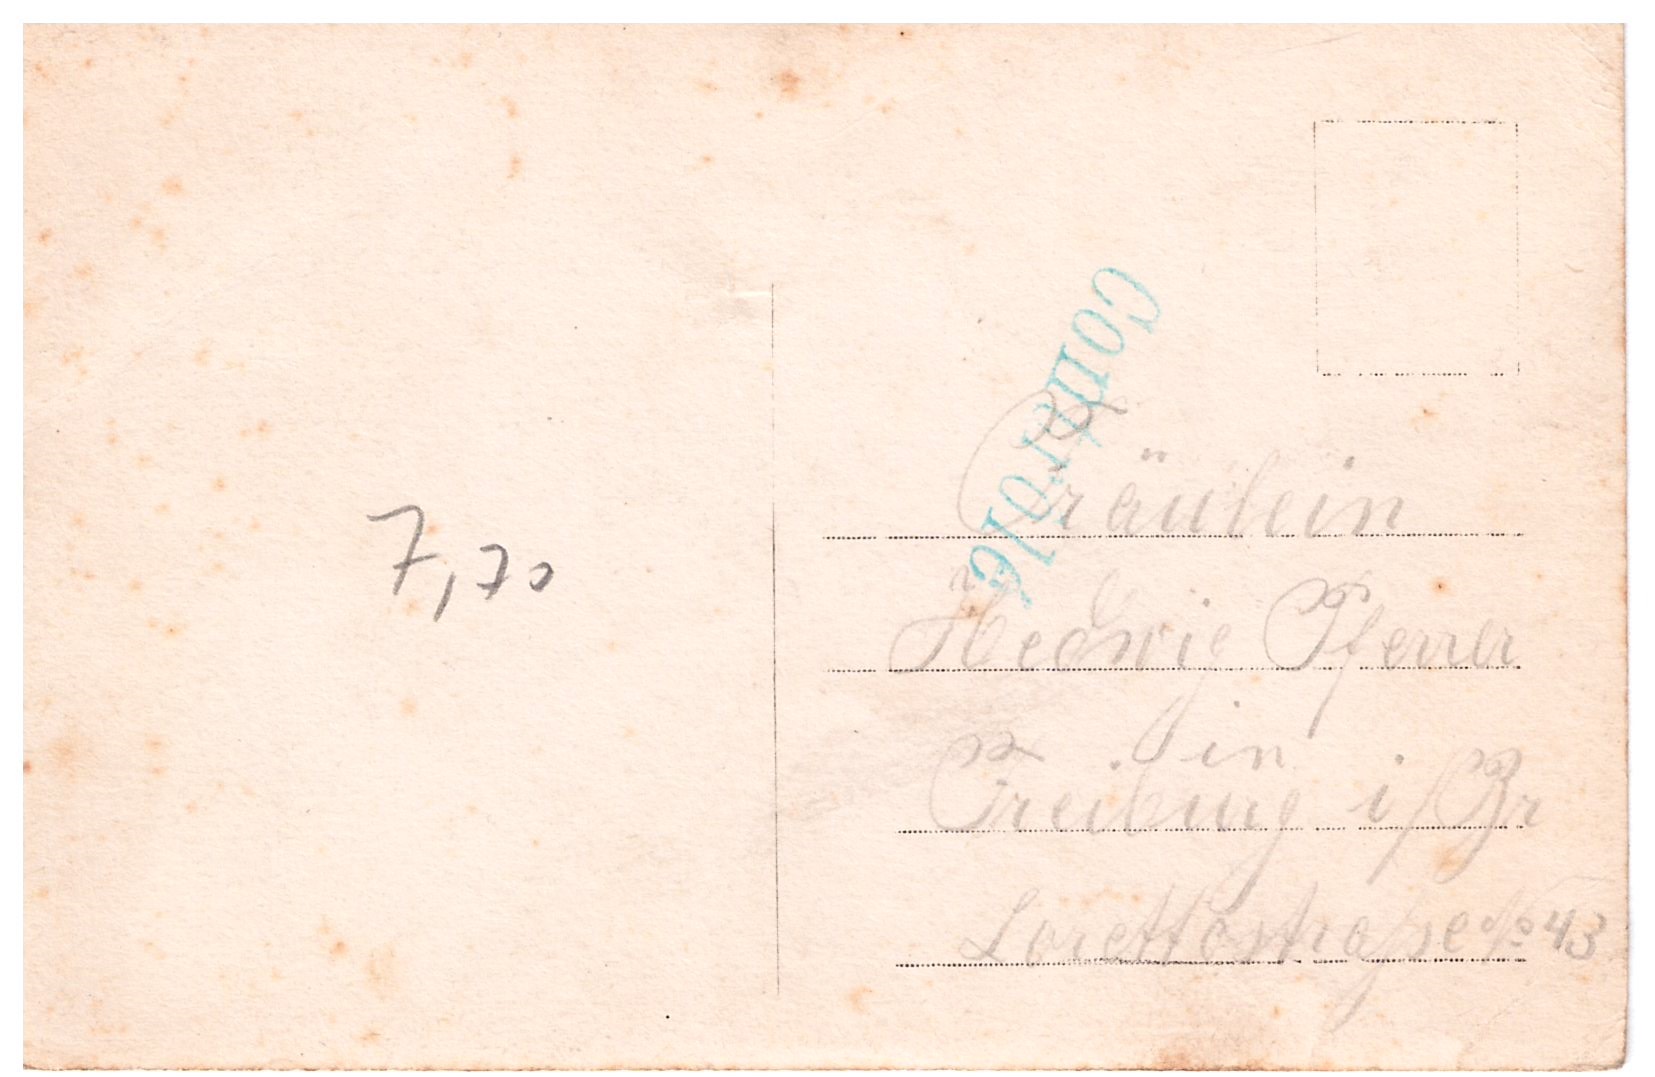 Controle
Fräulein
Hedwig Pferrer
in
7,70
Freiburg i/Br
Lorettostraße No 43